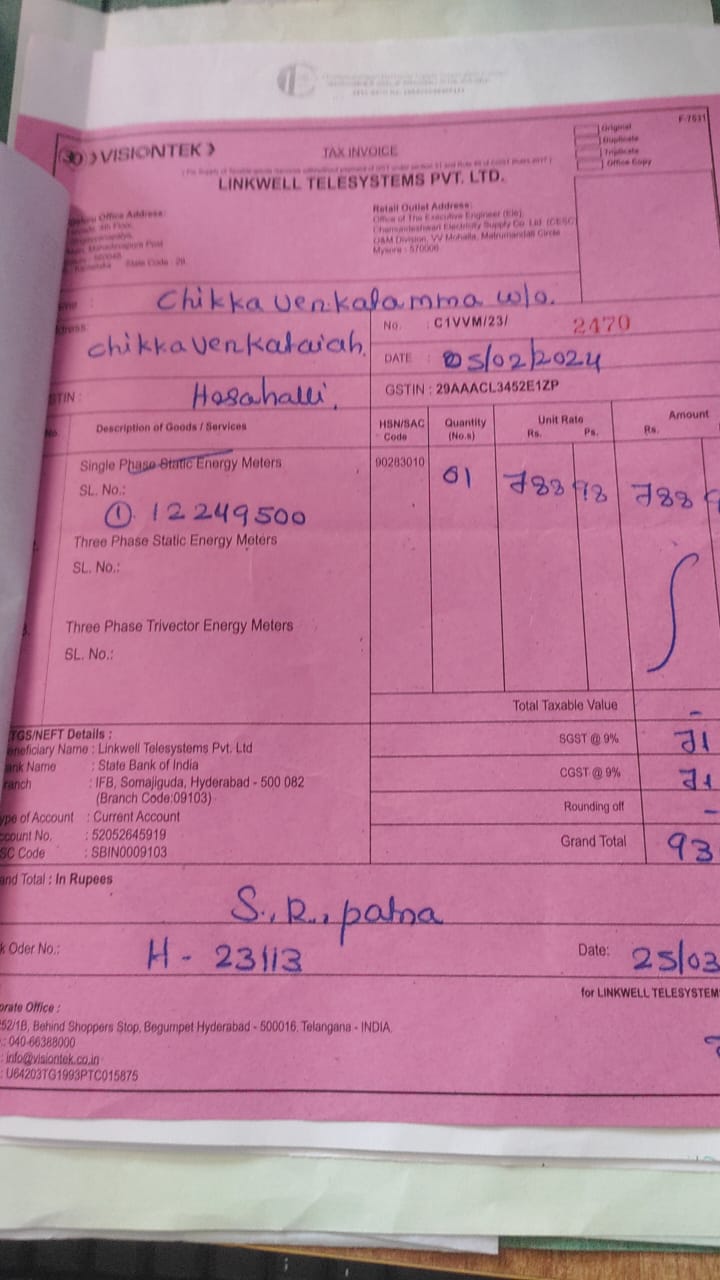 F-7531
VISIONTEK
TAX INVOICE
Original
Duplicate
Triplicate
Office Copy
LINKWELL TELESYSTEMS PVT. LTD.
Office Address:
Retail Outlet Address:
Office of The Executive Engineer (Ele),
Chamundeshwari Electricity Supply Co. Ltd. (CESC)
O&M Division, VV Mohalla, Matrumandali Circle
Mysore - 570006
State Code : 29
Chikkavenkatamma w/o.
No. : C1VVM/23/ 2470
Chikkavenkataiah.
DATE : 05/02/2024
Hosahalli,
GSTIN : 29AAACL3452E1ZP
Description of Goods / Services
HSN/SAC Code
Quantity (No.s)
Unit Rate Rs. Ps.
Amount Rs.
Single Phase Static Energy Meters
90283010
01
788 98
788
SL. No.:
① 12249500
Three Phase Static Energy Meters
SL. No.:
Three Phase Trivector Energy Meters
SL. No.:
Total Taxable Value -
TGS/NEFT Details :
eneficiary Name : Linkwell Telesystems Pvt. Ltd
SGST @ 9% 71
ank Name : State Bank of India
ranch : IFB, Somajiguda, Hyderabad - 500 082
CGST @ 9% 71
(Branch Code:09103)
Rounding off -
ype of Account : Current Account
ccount No. : 52052645919
Grand Total 93
SC Code : SBIN0009103
and Total : In Rupees
S.R. patna
k Oder No.: H - 23113
Date: 25/03
for LINKWELL TELESYSTEM
orate Office :
52/1B, Behind Shoppers Stop, Begumpet Hyderabad - 500016, Telangana - INDIA.
.: 040-66388000
: info@visiontek.co.in
: U64203TG1993PTC015875